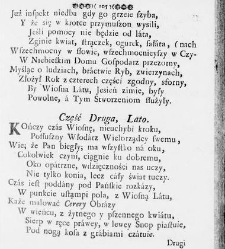 Jeż inspekt niedba gdy go grzeie szyba,
Y że się w krotce przymuszon wysili,
Jeśli pomocy nie będzie od lata,
Zginie kwiat, strączek, ogurek, sałata,
Wszechmocny w słowie, wszechmocnieyszy w
W Niebieskim Domu Gospodarz przezorny,
Myśląc o ludziach, bractwie Ryb, zwierzynach,
Złożył Rok z czterech części zgodny, sforny,
By Wiosna Latu, Jesień zimie, były
Powolne, a Tym Stworzeniom służyły.
Część Druga, Lato.
Kończy czas Wiosnę, nieuchybi kroku,
Posłuszny Włodarz Wielorządcy swemu,
Wie; że Pan biegły; ma wszystko na oku,
Cokolwiek czyni, ciągnie ku dobremu,
Oko opatrzne, wdzięczności nas uczy,
Nie tylko konia, lecz cały świat tuczy.
Czas iest poddány pod Pańskie rozkázy,
W punkcie ustąmpi pola, z Wiosną Látu
Każe malowáć Cerery Obrázy
W wieńcu, z żytnego y pszennego kwiátu,
Sierp w ręce práwey, w lewey Snop piástuie,
Pod nogą kosa z grabiami czátuie.
Drugi